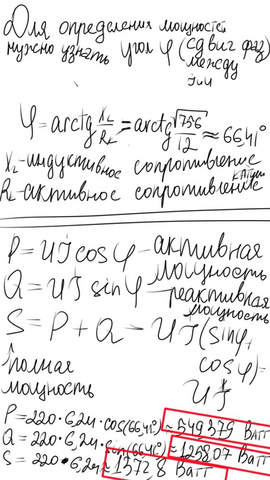 Для определения мощностей
нужно узнать угол φ (сдвиг фаз
между
J и U
φ = arctg X_L/R_L = arctg √756/12 ≈ 66,41°
X_L - индуктивное сопротивление
катушки
R_L - активное сопротивление
P = UJ cos φ - активная
мощность
Q = UJ sin φ - реактивная
мощность
S = P + Q - UJ (sin φ +
полная cos φ) =
мощность UJ
P = 220 · 6,24 · cos(66,41°) ≈ 549,379 Ватт
Q = 220 · 6,24 · sin(66,41°) ≈ 1258,07 Ватт
S = 220 · 6,24 ≈ 1372,8 Ватт